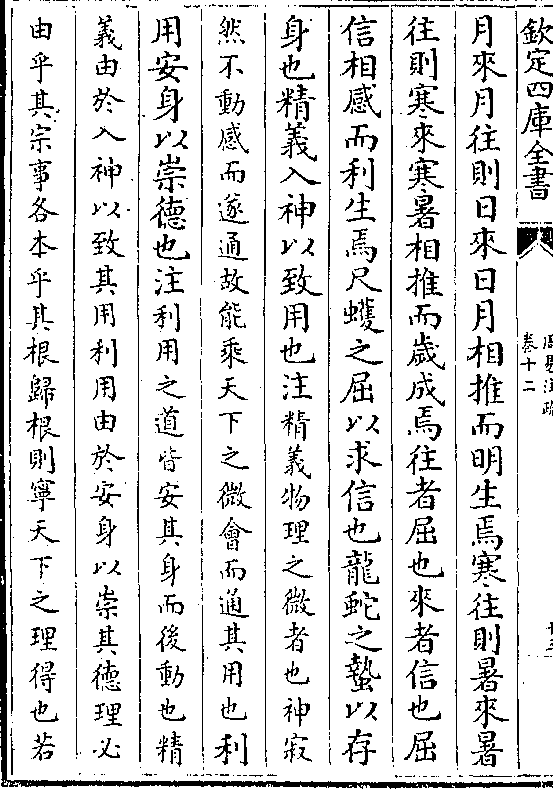 欽定四庫全書
卷十二
月來月往則日來日月相推而明生焉寒往則暑來暑
往則寒來寒暑相推而歲成焉往者屈也來者信也屈
信相感而利生焉尺蠖之屈以求信也龍蛇之蟄以存
身也精義入神以致用也注精義物理之微者也神寂
然不動感而遂通故能乘天下之微會而通其用也利
用安身以崇德也注利用之道皆安其身而後動也精
義由於入神以致其用利用由於安身以崇其德理必
由乎其宗事各本乎其根歸根則寧天下之理得也若